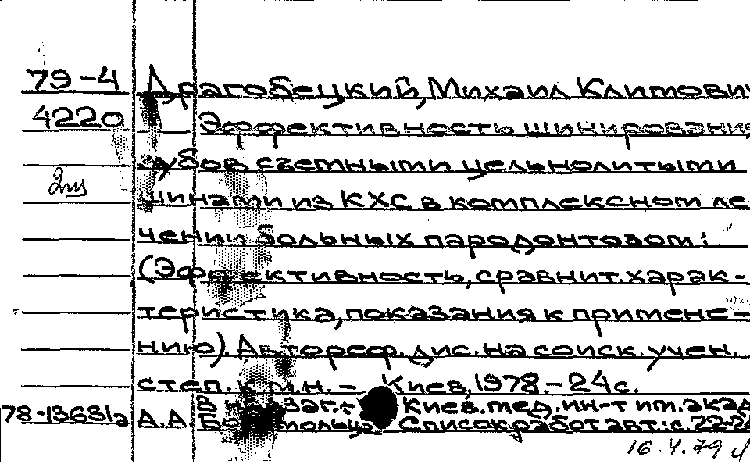 79-4 Драгобецкий, Михаил Климович
4220 Эффективность шинирования
зубов съемными цельнолитыми
2 шинами из КХС в комплексном ле
чении больных пародонтозом:
(Эффективность, сравнит. харак-
теристика, показания к примене-
нию) Автореф. дис. на соиск. учен.
степ. к.м.н. - Киев, 1978 - 24с.
Киев. мед. ин-т им. акад
78-13631а А.А. Список работ авт.: с. 22-2
16.4.79